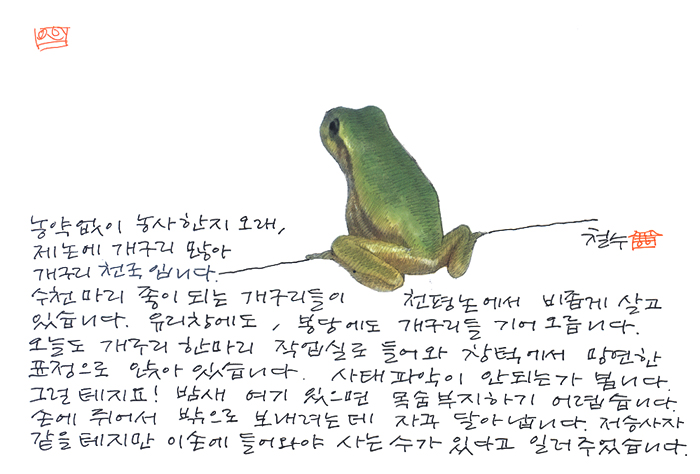 농약없이 농사한지 오래,
제 논에 개구리 많아
개구리 천국입니다.
철수
수천마리 쯤이 되는 개구리들이 천평논에서 비좁게 살고
있습니다. 유리창에도, 봉당에도 개구리들 기어오릅니다.
오늘도 개구리 한마리 작업실로 들어와 창턱에서 망연한
표정으로 앉아 있습니다. 사태파악이 안되는가 봅니다.
그럴테지요! 밤새 여기 있으면 목숨부지하기 어렵습니다.
손에 쥐어서 밖으로 보내려는데 자꾸 달아납니다. 저승사자
같을테지만 이손에 들어와야 사는수가 있다고 일러주었습니다.